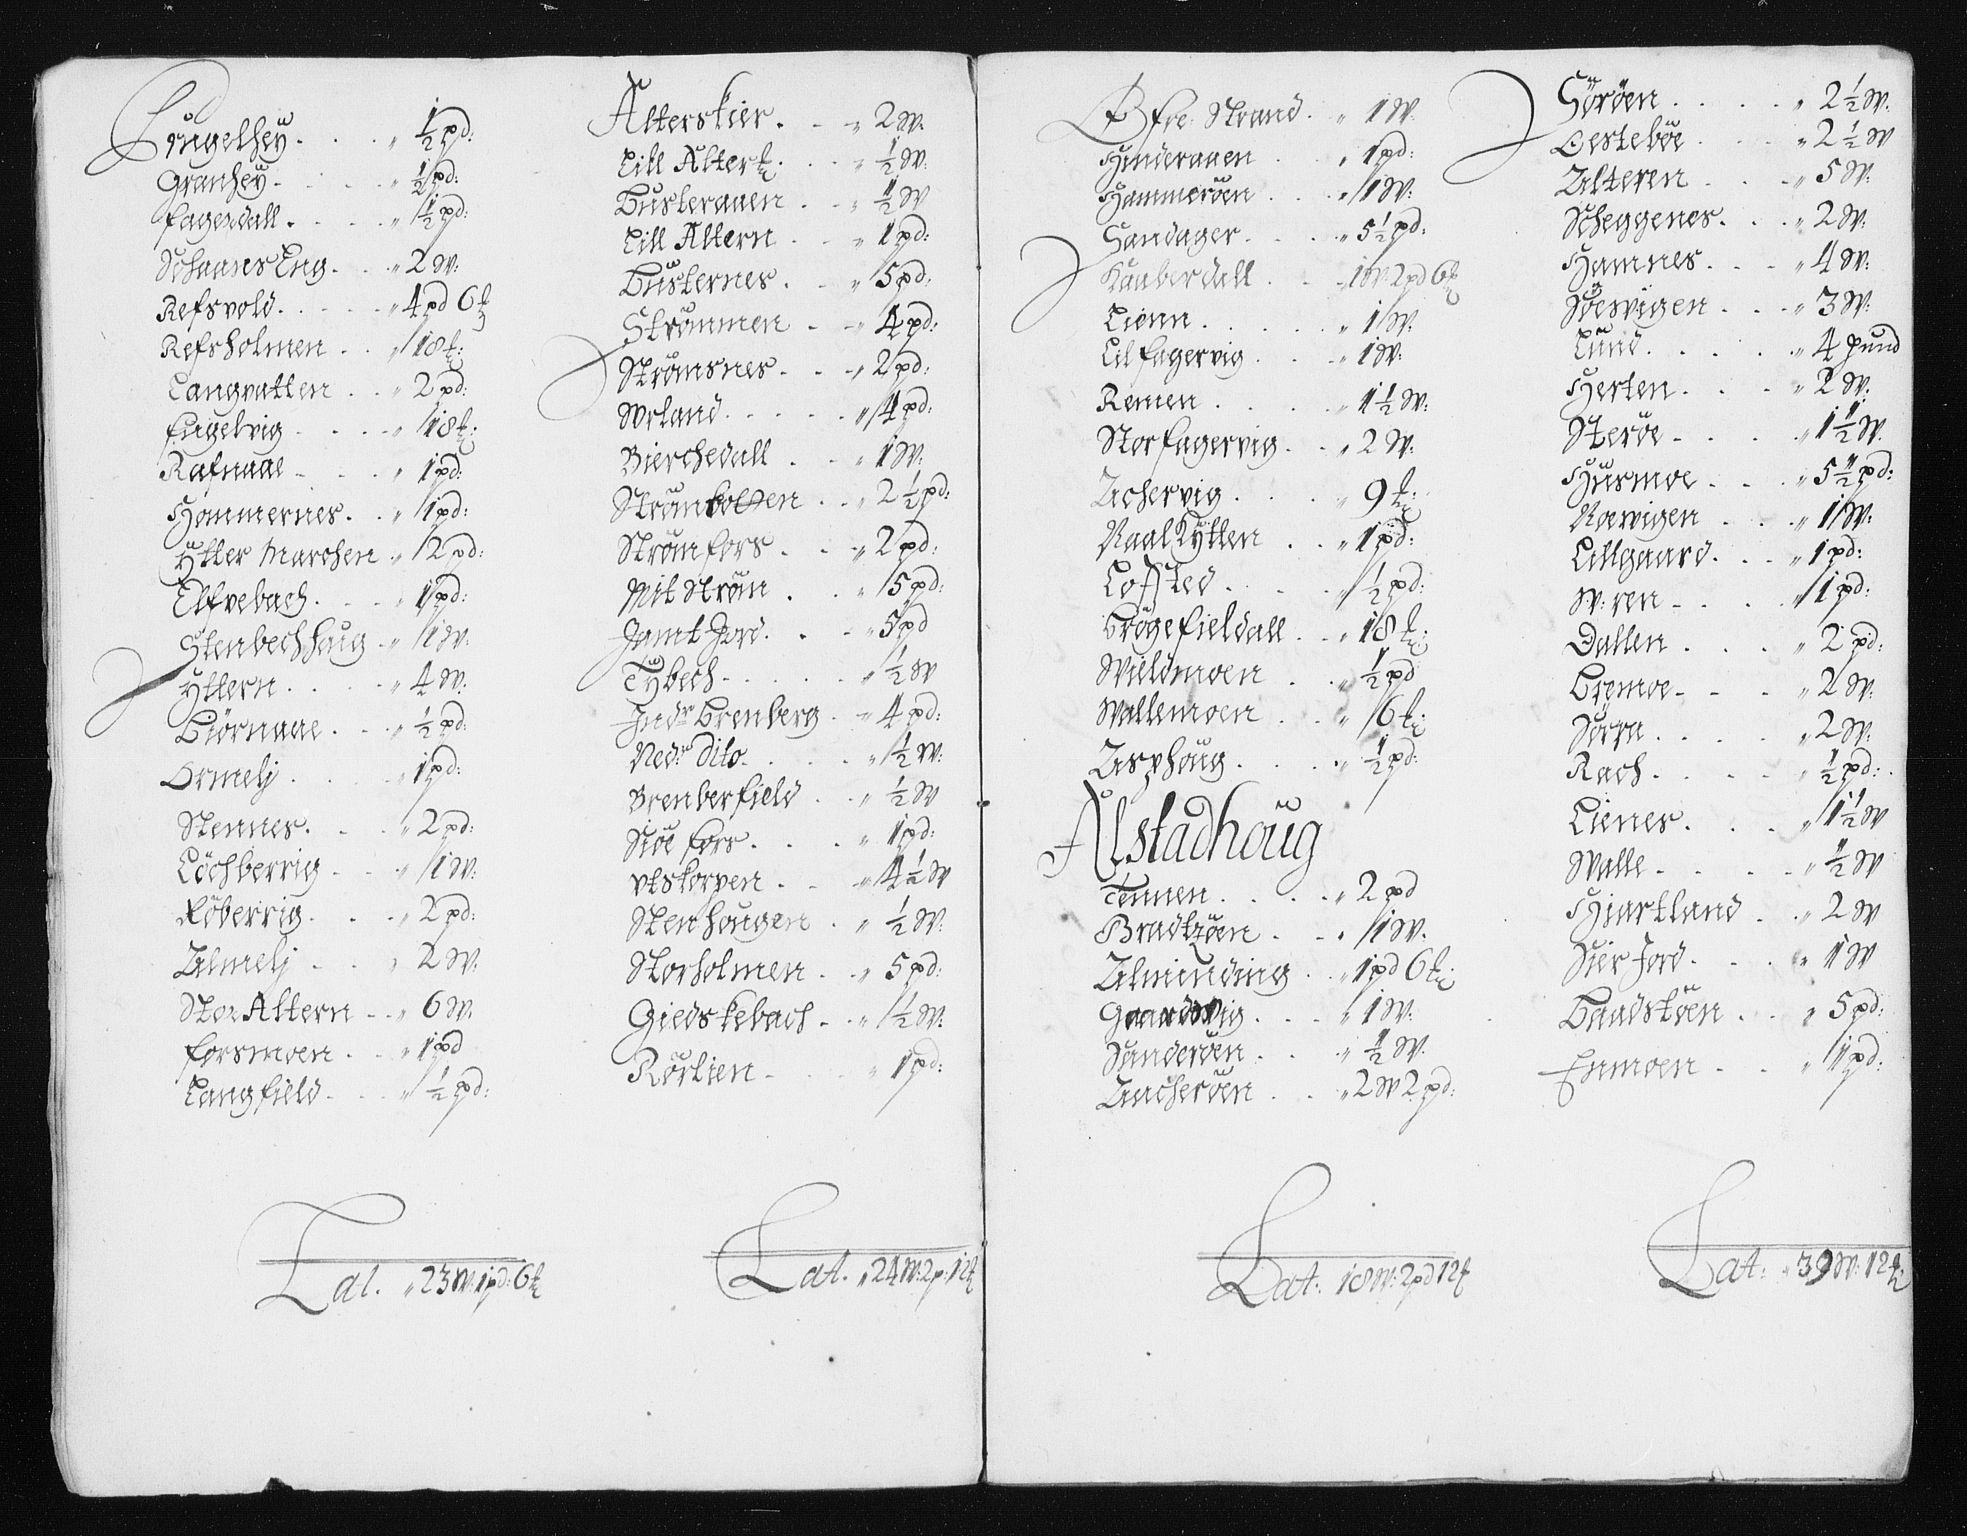 Engelhey . . . " ½ pd:
Granhey . . . . " ½ pd:
fagerdall . . . . " ½ pd:
Schaans Eng . . . " 2 W:
Refsvold . . . . . " 4 pd 6 ℔
Refsholmen . . " 18 ℔:
Langvatten . . " 2 pd:
Engelvig . . . . " 18 ℔:
Rafnaae . . . " 1 pd:
Hammernes . . " 1 pd:
Ytter Marchen . " 2 pd:
Elfvebach . . . " 1 pd:
Stenbechhaug . " 1 W:
Yttern . . . . " 4 W:
Biörnaae . . . " ½ pd:
Ormelj . . . . " 1 pd:
Stennes . . . " 2 pd:
Löchberrig . . . " 1 W:
Röberrig . . . " 2 pd:
Almelj . . . " 2 W:
Stor Altern . . " 6 W:
forsmoen . . . " 1 pd
Langfield . . . " ½ pd:
Lat. " 23 W: 1 pd: 6 ℔
Alterskier . . . " 2 W:
Lill Altern . . . " ½ W:
Busteraaen . . " ½ W
Lill Altern . . " 1 pd:
Busternes . . . " 5 pd:
Strömmen . . " 4 pd:
Strömsnes . . . " 2 pd:
Wrland . . . . . " 4 pd:
Bierchedall . . " 1 W:
Strömbotten . . " 2½ pd:
Strömfors . . . " 2 pd:
Mit Ström . . " 5 pd:
Jamt Jord . . . " 5 pd
Tybech . . . . . " ½ W
Indr Brenberg . . " 4 pd:
Nedr Dito . . . . " ½ W:
Brenberfield . . " ½ W
Siöe fors . . . " 1 pd:
Vtskorpen . . . " 4½ W
Stenhougen . . " ½ W:
Storholmen . . " 5 pd:
Giedskebach . . " ½ W:
Rörlien . . . . " 1 pd:
Lat. " 24 W: 2 p: 12 ℔
Øfre Strand . " 1 W
Hinderaaen . . " 1 pd:
Hammeröen . . . " 1 W:
Sandager . . . . " 5½ pd:
Kaaberdall . . . 1 W 2 pd 6 ℔
Lienn . . . . . " 1 W:
Lilfagervig . . . " 1 W:
Remen . . . . " 1½ W:
Storfagervig . . " 2 W:
Achervig . . . " 9 ℔:
Raal Kytten . . " 1 pd:
Lofsted . . . . " ½ pd:
Brögefieldall . . " 18 ℔:
Wieldmoen . . " ½ pd
Wallemoen . . " 6 ℔:
Asphoug . . . . " ½ pd:
Alstadhoüg
Tennen . . . . " 2 pd
Bradtzöen . . . 1 W.
Alminding . . " 1 pd 6 ℔:
Gaardsvig . . . " 1 W:
Sanderöen . . . " ½ W.
Anderöen . . . " 2 W 2 pd:
Lat: 18 W: 2 pd 12 ℔
Söröen . . . . " 2½ W.
Oestebøe . . . . " 2½ W
Alteren . . . . " 5 W:
Scheggenes . . . " 2 W:
Hamnes . . . . " 4 W:
Söevigen . . . " 3 W:
Lund . . . . " 4 pund
Herten . . . . " 2 W.
Steröe . . . . " 1½ W.
Husmoe . . . . " 5½ pd:
Roevigen . . . " 1 W:
Lillgaard . . . " 1 pd:
W:ren . . . . " 1 pd:
Dallen . . . . " 2 pd:
Bremoe . . . " 2 W:
Sörra . . . . " 2 W:
Rach . . . . . " ½ pd:
Lienes . . . . " 1½ W
Walle . . . . . " ½ W
Hjartland . . . " 2 W
Sier Jord . . . " 1 W
Baadstöen . . . " 5 pd:
Enmoen . . . " 1 pd:
Lat: " 39 W: 12 ℔: